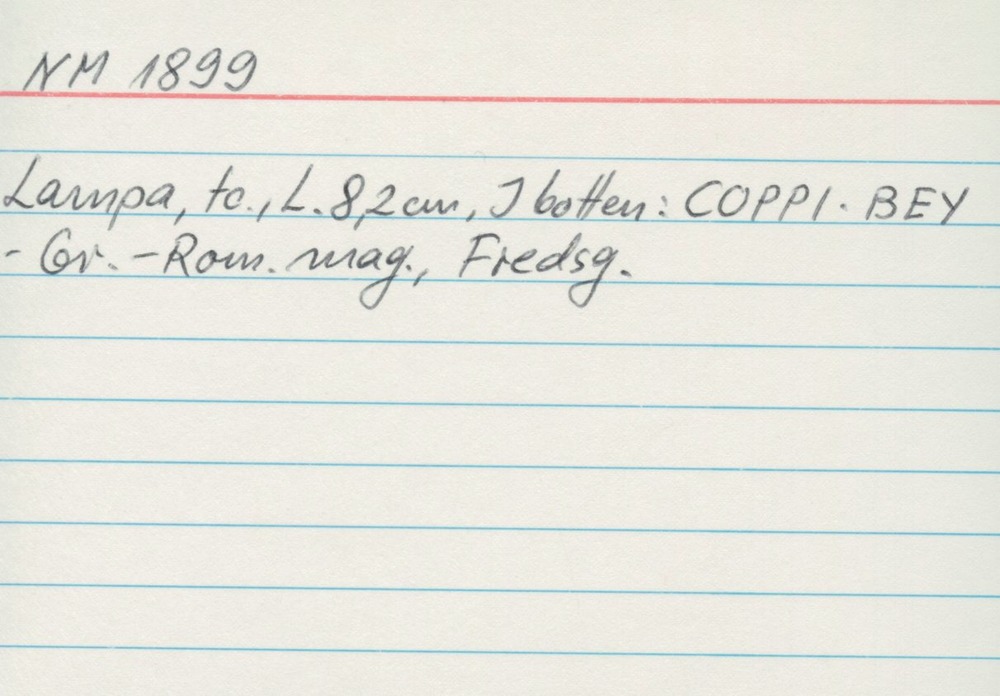 NM 1899
Lampa, tc., L. 8,2 cm, I botten: COPPI. BEY
- Gr. - Rom. mag., Fredsg.